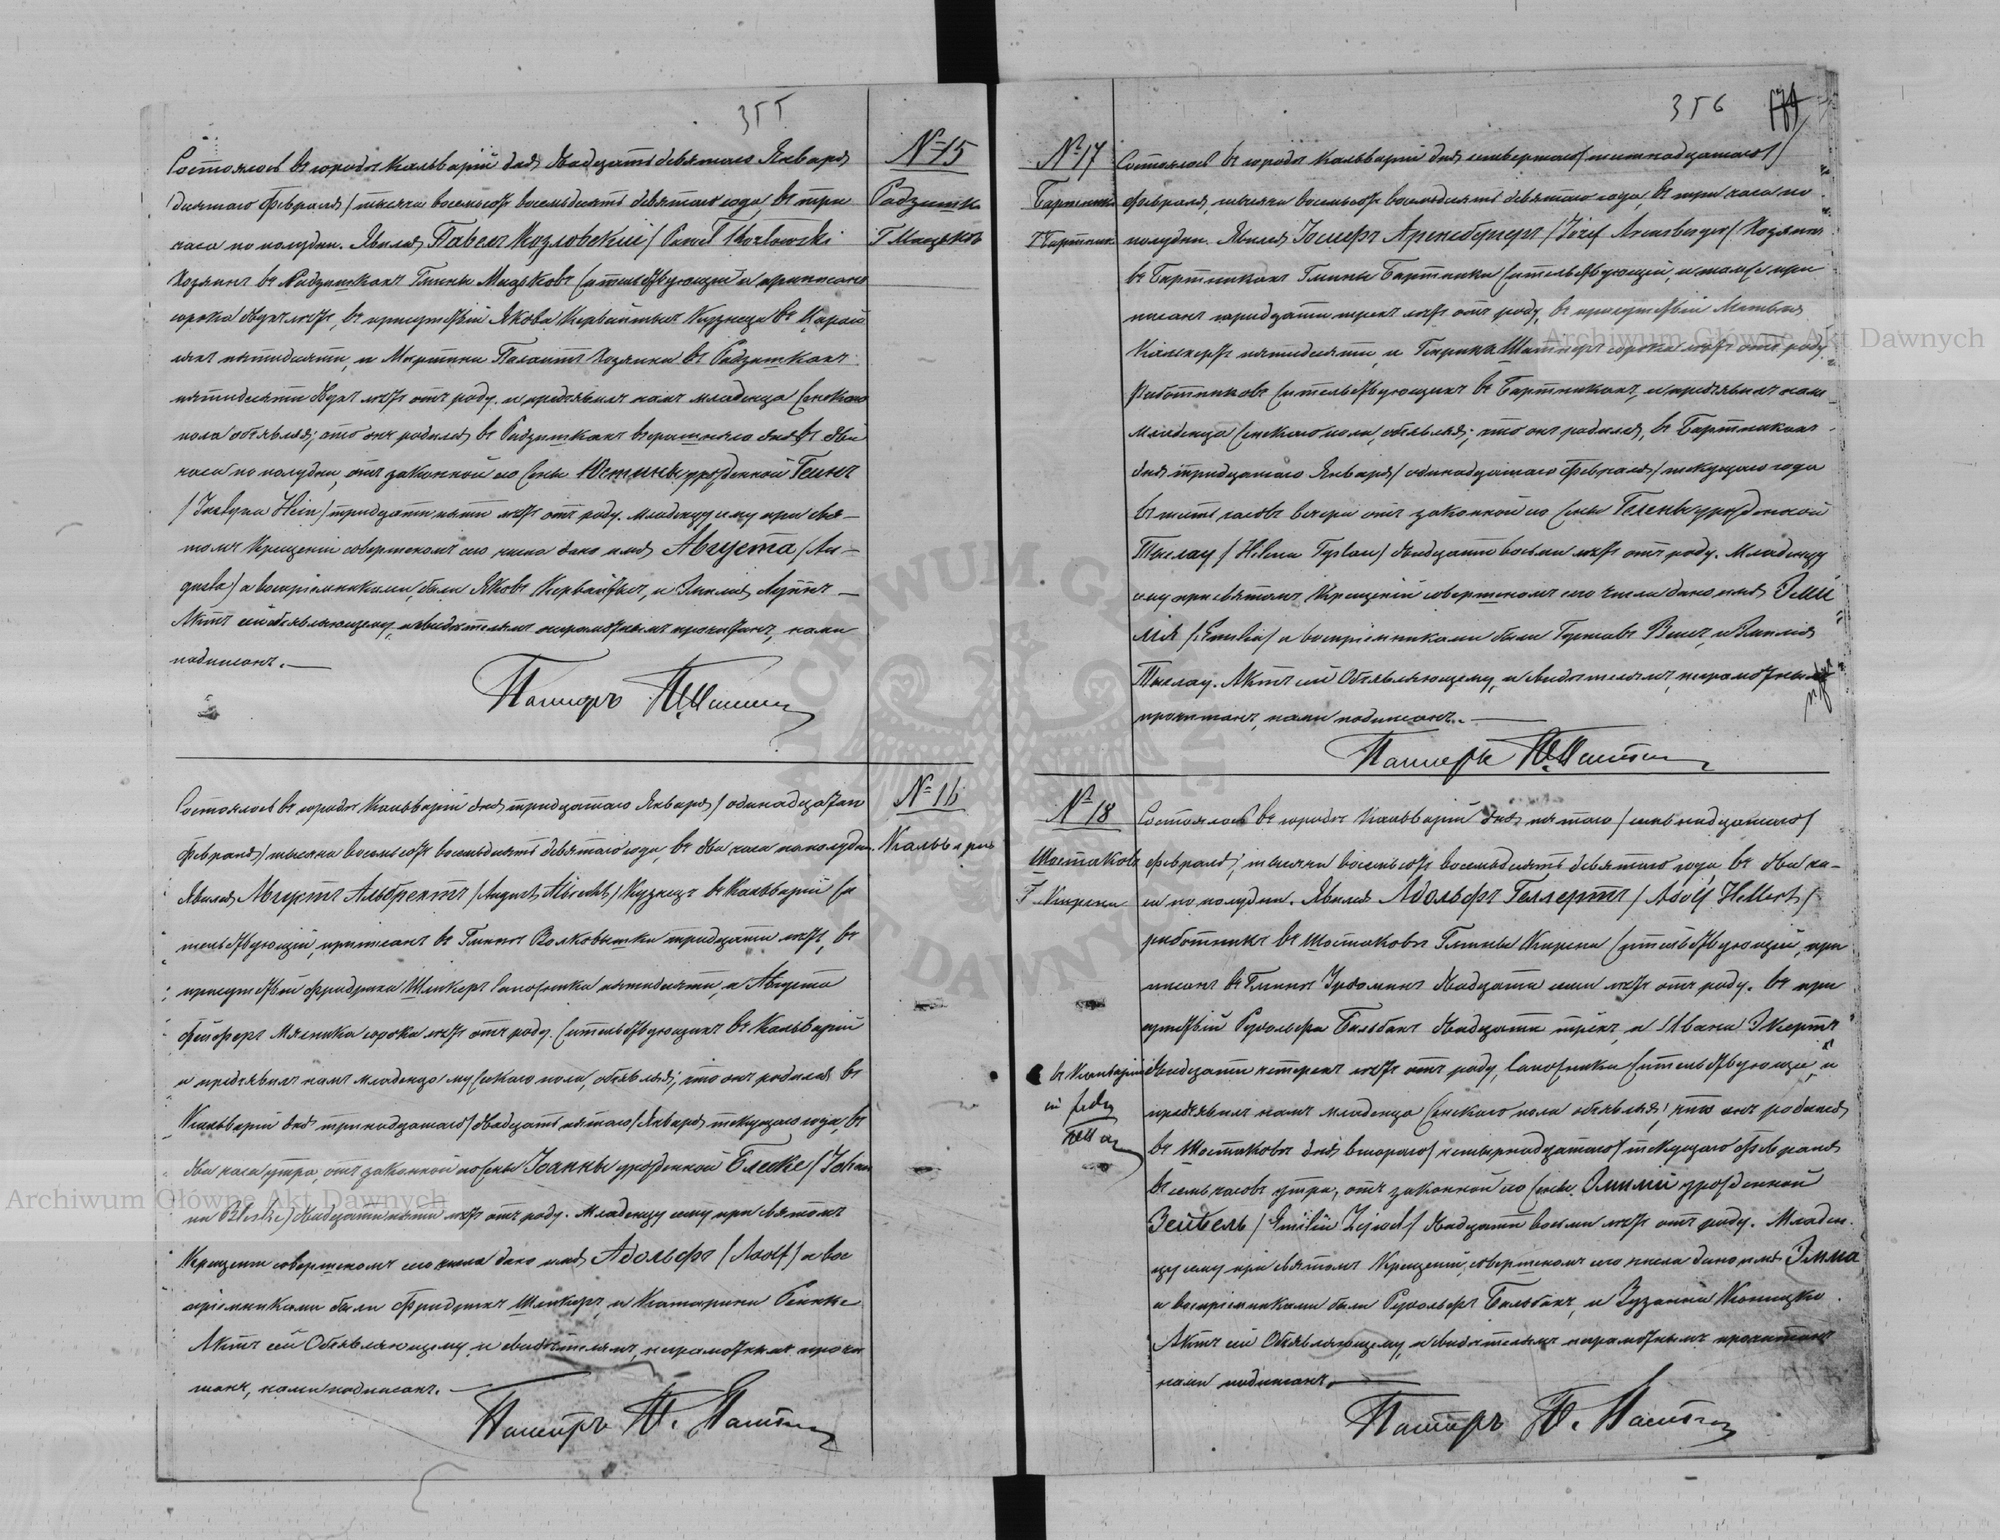 355
№ 15
Радзишки
Г. Мацьков
Состоялось въ городѣ Кальваріи дня двадцать девятаго Января
десятаго Февраля/ тысяча восемьсотъ восемьдесятъ девятаго года, въ три
часа по полудни. Явился Павелъ Козловскій / Pawel Kozlowski
Хозяинъ въ Радзишкахъ Гмины Мацьковъ жительствующій и приписанъ
сорока двухъ лѣтъ, въ присутствіи Якова Кузнеца въ
пятидесяти, и Мартина Хозяина въ Радзишкахъ
пятидесяти двухъ лѣтъ отъ роду. и предъявилъ намъ младенца женскаго
пола объявляя; что онъ родился въ Радзишкахъ вчерашняго дня въ два
часа по полудни, отъ законной его жены Юстины урожденной Геинъ
/ Hein / тридцати пяти лѣтъ отъ роду. Младенцу сему при свя-
томъ Крещеніи совершеномъ сего числа дано имя Августа /Au-
gusta/ а воспріемниками были Яковъ и Эмилія
Актъ сей объявляющему, и свидѣтелямъ неграмотнымъ прочитанъ, нами
подписанъ. —
Пасторъ
№ 16
Кальварія
Состоялось въ городѣ Кальваріи дня тридцатаго Января / одинадцатаго
Февраля/ тысяча восемьсотъ восемьдесятъ девятаго года, въ два часа пополудни.
Явился Августъ Альбрехтъ / August Albrecht / Кузнецъ въ Кальваріи жи
тельствующій, приписанъ въ Гминѣ Волковышки тридцати лѣтъ, въ
присутствіи Фридриха Шликеръ сапожника пятидесяти, и Августа
Фейферъ Мясника сорока лѣтъ отъ роду. жительствующихъ въ Кальваріи
и предъявилъ намъ младенца мужескаго пола, объявляя; что онъ родился въ
Кальваріи дня тринадцатаго/ двадцать пятаго/ Января текущаго года, въ
два часа утра, отъ законной его жены Іоанны урожденной Блеске / Johan
na Bleske / двадцати пяти лѣтъ отъ роду. Младенцу сему при святомъ
Крещеніи совершеномъ сего числа дано имя Адольфъ / Adolf / а вос
пріемниками были Фридрихъ Шликеръ, и Катарина
Актъ сей Объявляющему и свидѣтелямъ, неграмотнымъ прочи
танъ, нами подписанъ. —
Пасторъ
356
№ 17
Бартники
Г. Бартники
Состоялось въ городѣ Кальваріи дня четвертаго/ шестнадцатаго/
Февраля, тысяча восемьсотъ восемьдесятъ девятаго года, въ три часа по
полудни. Явился Іосифъ Аренсбергеръ / Józef Arensberger / Хозяинъ
въ Бартникахъ Гмины Бартники жительствующій, и тамже при
писанъ тридцати трехъ лѣтъ отъ роду, въ присутствіи
пятидесяти, и Генриха сорока лѣтъ отъ роду.
Работниковъ жительствующихъ въ Бартникахъ, и предъявилъ намъ
младенца женскаго пола объявляя; что онъ родился, въ Бартникахъ
дня тридцатаго Января/ одинадцатаго Февраля/ текущаго года
въ шесть часовъ вечера отъ законной его жены Гелены урожденной
Тыслау / Helena Tyslau / двадцати восьми лѣтъ отъ роду. Младенцу
сему при святомъ Крещеніи совершеномъ сего числа дано имя Эми
лія / Emilia / а воспріемниками были Густавъ и Эмилія
Тыслау. Актъ сей Объявляющему, и свидѣтелямъ, неграмотнымъ
прочитанъ, нами подписанъ. —
Пасторъ
№ 18
Шостаковъ
Г. Кирсна
Состоялось въ городѣ Кальваріи дня пятаго / семьнадцатаго/
Февраля, тысяча восемьсотъ восемьдесятъ девятаго года, въ два ча-
са по полудни. Явился Адольфъ Геллертъ / Adolf Hellert /
работникъ въ Шостаковѣ Гмины Кирсна жительствующій, при
писанъ въ Гминѣ Урдоминъ двадцати семи лѣтъ отъ роду. въ при
сутствіи Рудольфа двадцати трехъ, и Ивана Экертъ
двадцати четырехъ лѣтъ отъ роду, сапожники жительствующіе, и
въ Кальваріи
предъявилъ намъ младенца женскаго пола объявляя, что онъ родился
въ Шостаковѣ дня втораго/ четырнадцатаго/ текущаго Февраля
въ семь часовъ утра, отъ законной его жены Эмиліи урожденной
Зейбель / Emilia / двадцати восьми лѣтъ отъ роду. Младен-
цу сему при святомъ Крещеніи, совершеномъ сего числа дано имя Эмма
а воспріемниками были Рудольфъ и Зузанна
Актъ сей Объявляющему, и свидѣтелямъ неграмотнымъ прочитанъ
нами подписанъ. —
Пасторъ
Archiwum Główne Akt Dawnych
Archiwum Główne Akt Dawnych
ARCHIWUM GŁÓWNE AKT DAWNYCH